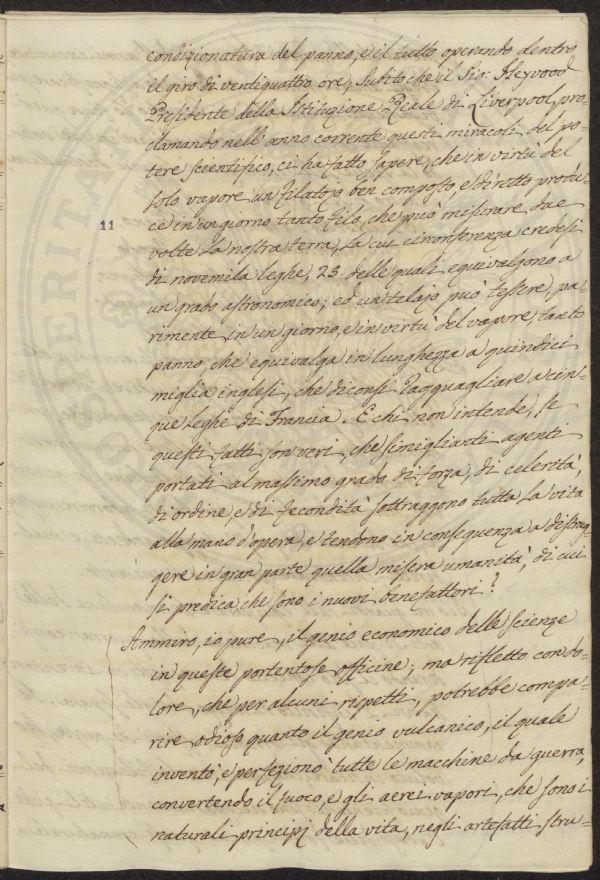 condizionatura del panno, e il tutto operando dentro
il giro di ventiquattro ore, Subito che il Sig: Heywood
Presidente della Istituzione Reale di Liverpool, pro=
clamando nell'anno corrente questi miracoli del po=
tere scientifico, ci ha fatto sapere, che in virtù del
solo vapore un filatojo ben composto, e diretto produ=
ce in un giorno tanto filo, che può misurare due
11
volte la nostra terra, la cui circonferenza credesi
di novemila leghe, 25. delle quali equivalgono a
un grado astronomico; ed un telajo può tessere, pa=
rimente in un giorno, e in virtù del vapore, tanto
panno, che equivalga in lunghezza a quindici
miglia inglesi, che diconsi ragguagliare a cin=
que leghe di Francia. E chi non intende, se
questi fatti son veri, che simiglianti agenti
portati al massimo grado di forza, di celerità,
di ordine, e di fecondità sottraggono tutta la vita
alla mano d'opera, e tendono in conseguenza a distrug=
gere in gran parte quella misera umanità, di cui
si predica, che sono i nuovi benefattori?
Ammiro, io pure, il genio economico delle scienze
in queste portentose officine; ma rifletto con do=
lore, che per alcuni rispetti, potrebbe compa=
rire odioso quanto il genio vulcanico, il quale
inventò, e perfezionò tutte le macchine da guerra,
convertendo il fuoco, e gli aerei vapori, che sono i
naturali principj della vita, negli artefatti stru=